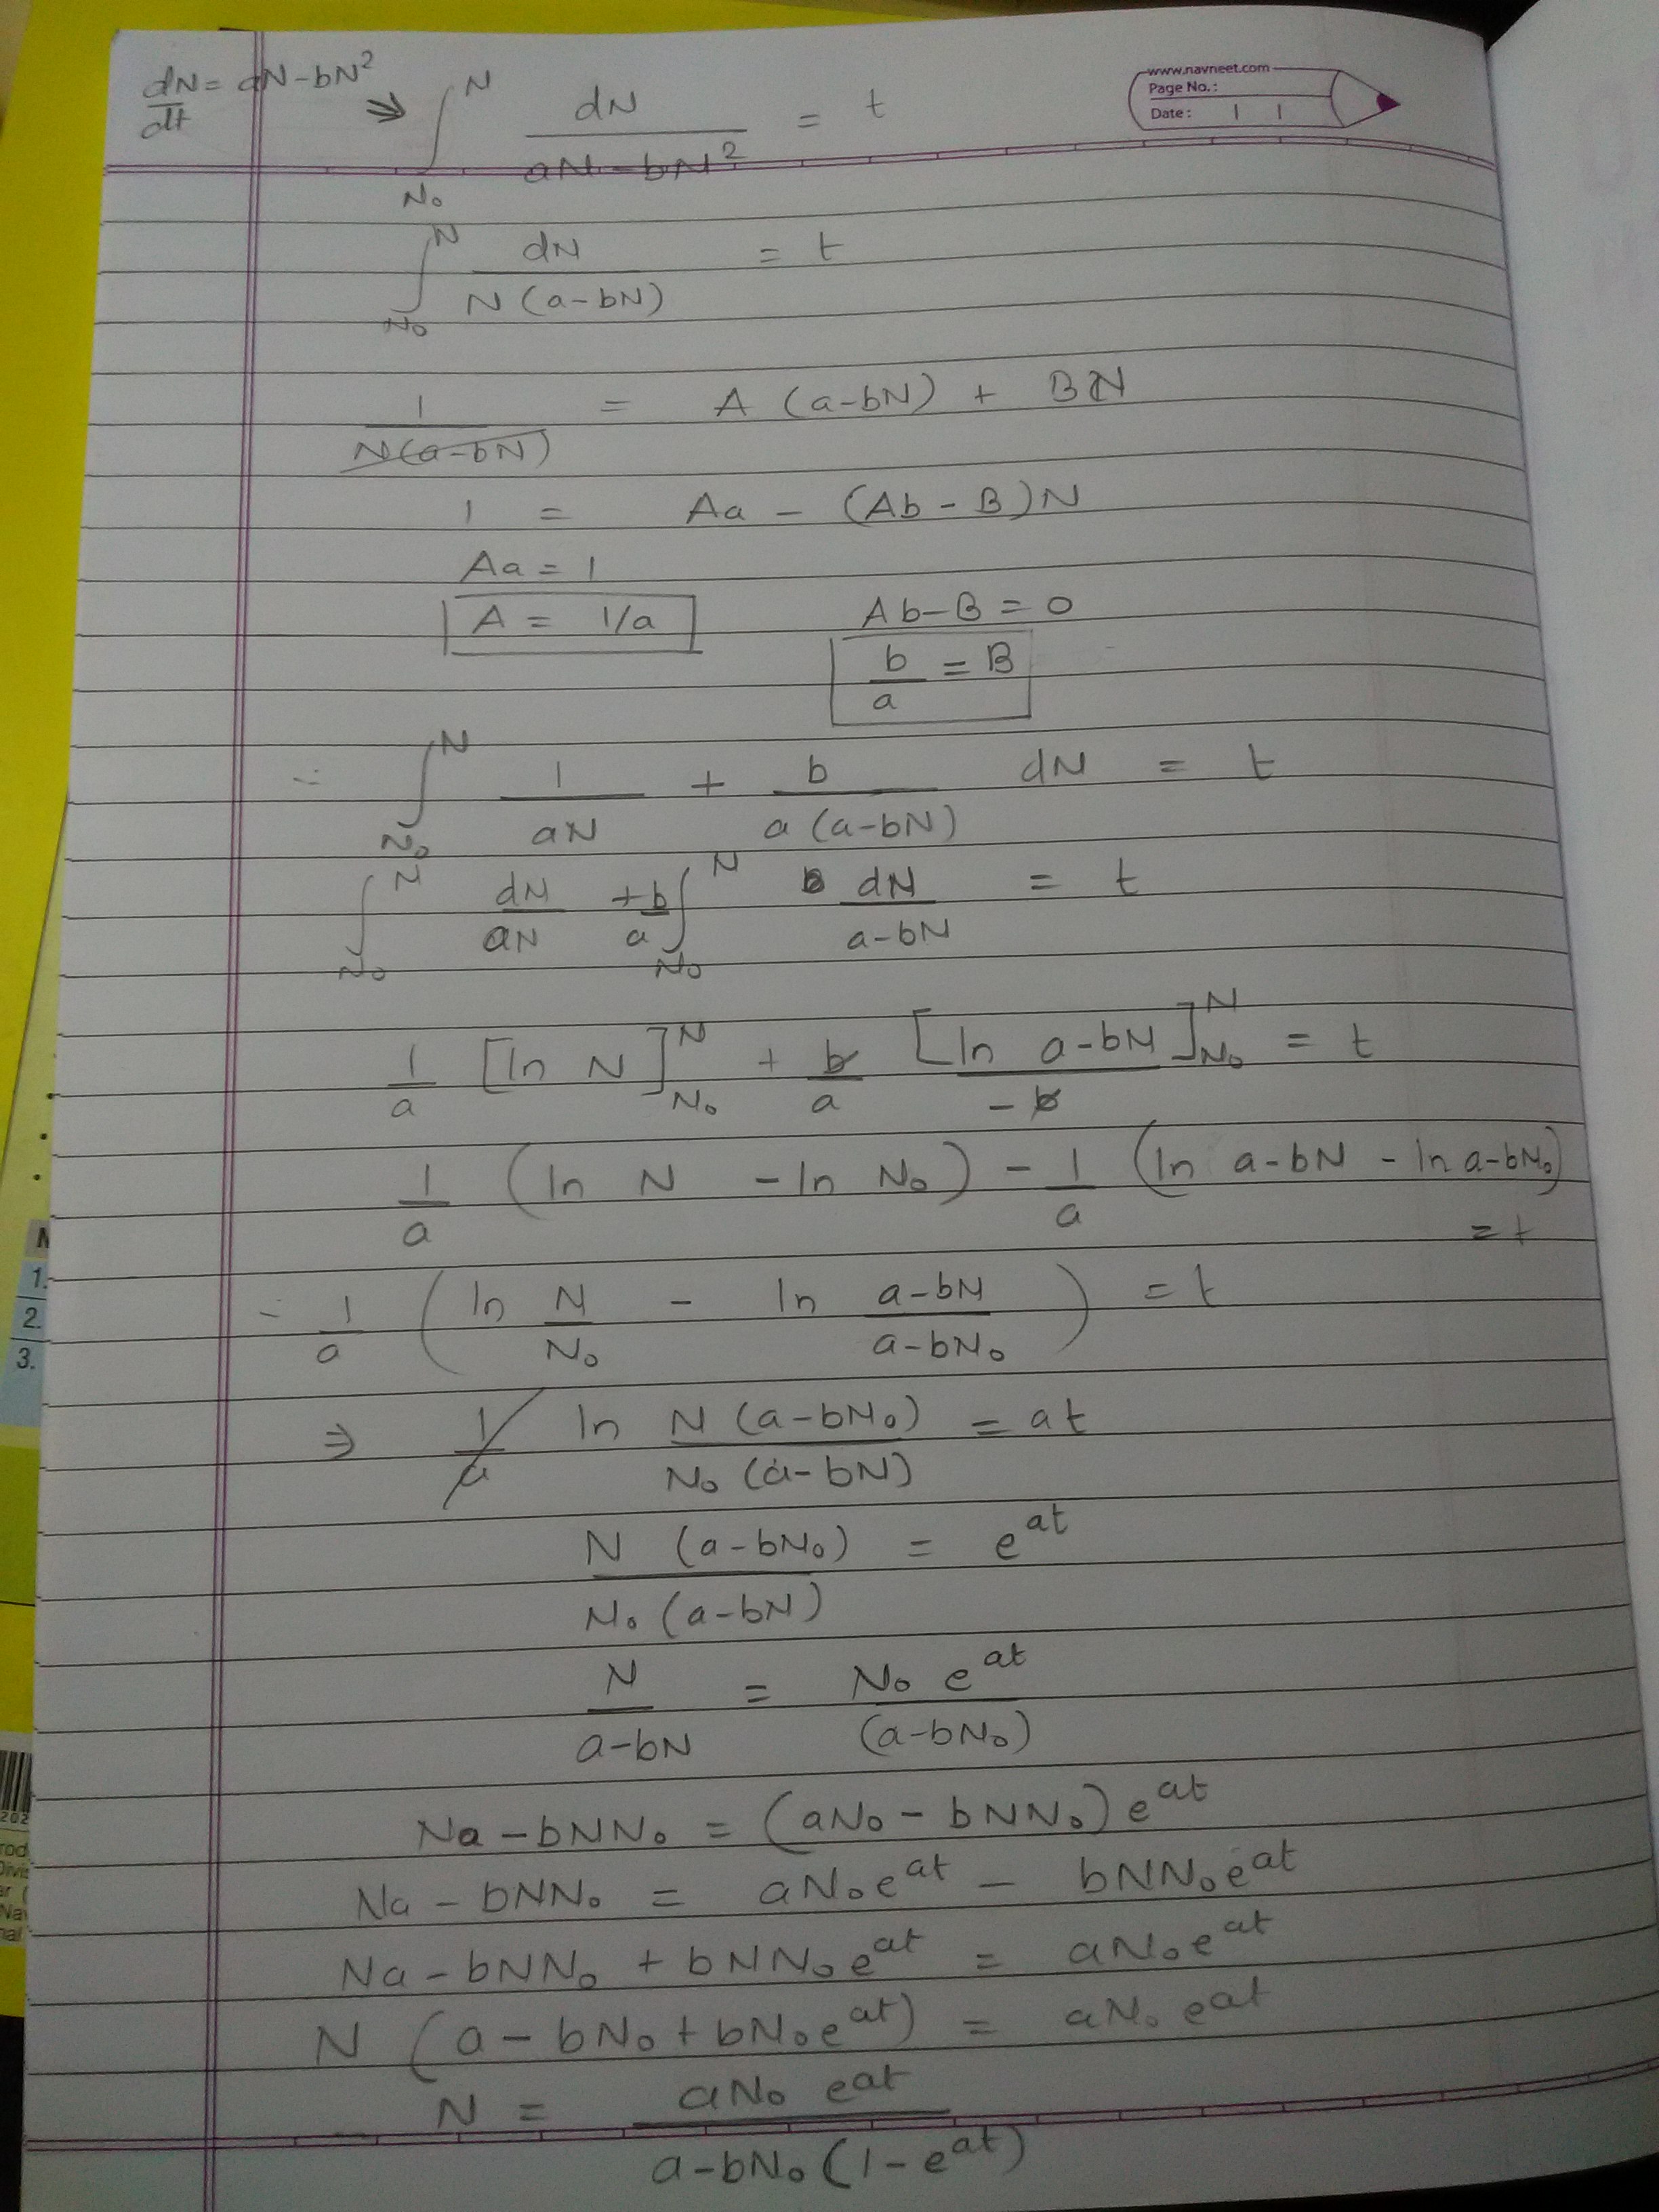 dN/dt = aN-bN² ⇒ ∫_{N₀}^{N} dN/(aN-bN²) = t
www.navneet.com
Page No.:
Date:
∫_{N₀}^{N} dN/(N(a-bN)) = t
1/(N(a-bN)) = A (a-bN) + BN
1 = Aa - (Ab-B)N
Aa = 1
A = 1/a Ab-B = 0
b/a = B
∴ ∫_{N₀}^{N} 1/(aN) + b/(a(a-bN)) dN = t
∫_{N₀}^{N} dN/(aN) + b/a ∫_{N₀}^{N} dN/(a-bN) = t
1/a [ln N]_{N₀}^{N} + b/a [ln a-bN]_{N₀}^{N}/(-b) = t
1/a (ln N - ln N₀) - 1/a (ln a-bN - ln a-bN₀)
= t
∴ 1/a (ln N/N₀ - ln (a-bN)/(a-bN₀)) = t
⇒ 1/a ln N(a-bN₀)/(N₀(a-bN)) = at
N(a-bN₀)/(N₀(a-bN)) = e^{at}
N/(a-bN) = N₀ e^{at}/(a-bN₀)
Na-bNN₀ = (aN₀ - bNN₀) e^{at}
Na - bNN₀ = aN₀e^{at} - bNN₀e^{at}
Na - bNN₀ + bNN₀e^{at} = aN₀e^{at}
N (a - bN₀ + bN₀e^{at}) = aN₀ e^{at}
N = aN₀ e^{at}/(a-bN₀(1-e^{at}))
1.
2.
3.
202